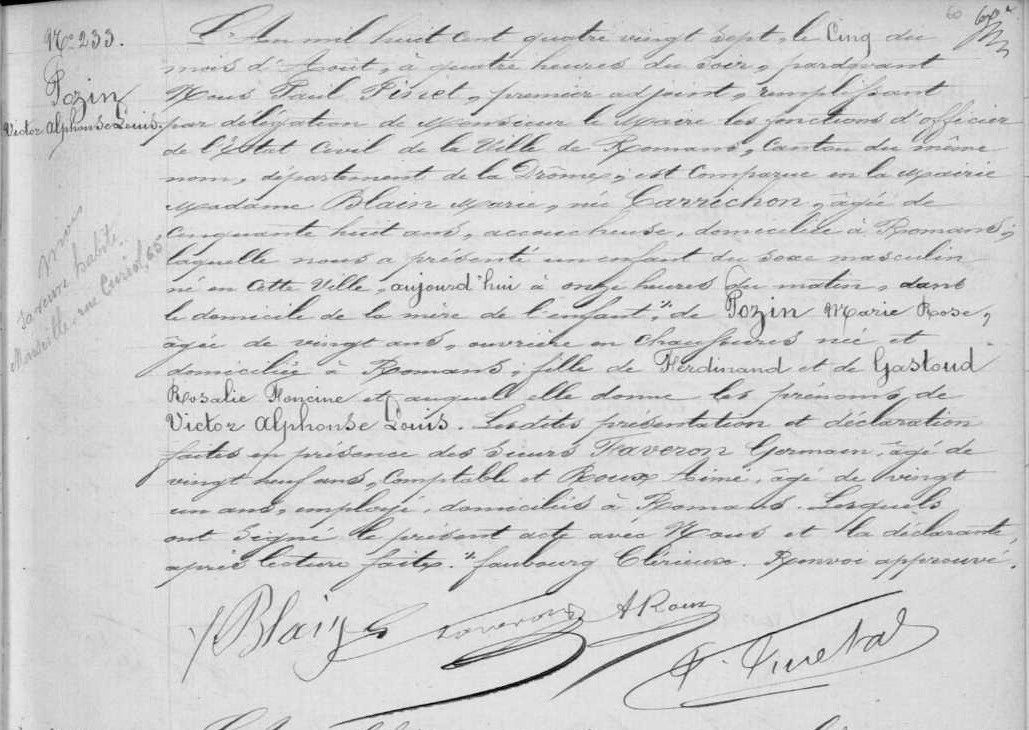 60
N° 233.
Pozin
Victor Alphonse Louis.
L'An mil huit cent quatre vingt sept, le Cinq du
mois d'Août, à quatre heures du soir, pardevant
Nous Paul Pinet, premier adjoint, remplissant
par délégation de Monsieur le Maire les fonctions d'officier
de l'État Civil de la Ville de Romans, Canton du même
nom, département de la Drôme, est Comparue en la Mairie
Madame Blain Marie, née Carrichon, âgée de
cinquante huit ans, accoucheuse, domiciliée à Romans,
laquelle nous a présenté un enfant du sexe masculin
né en Cette Ville, aujourd'hui à onze heures du matin, dans
le domicile de la mère de l'enfant, " de Pozin Marie Rose,
âgée de vingt ans, ouvrière en chaussures née et
domiciliée à Romans, fille de Ferdinand et de Gastoud
Rosalie Foncine et auquel elle donne les prénoms de
Victor Alphonse Louis. Lesdites présentation et déclaration
faites en présence des sieurs Faveron Germain, âgé de
vingt neuf ans, Comptable et Roux Aimé, âgé de vingt
un ans, employé, domiciliés à Romans. Lesquels
ont signé le présent acte avec Nous et la déclarante,
après lecture faite. " faubourg Clérieux. Renvoi approuvé.
habite
Marseille, rue Curiol, 65
Blain Faveron A Roux